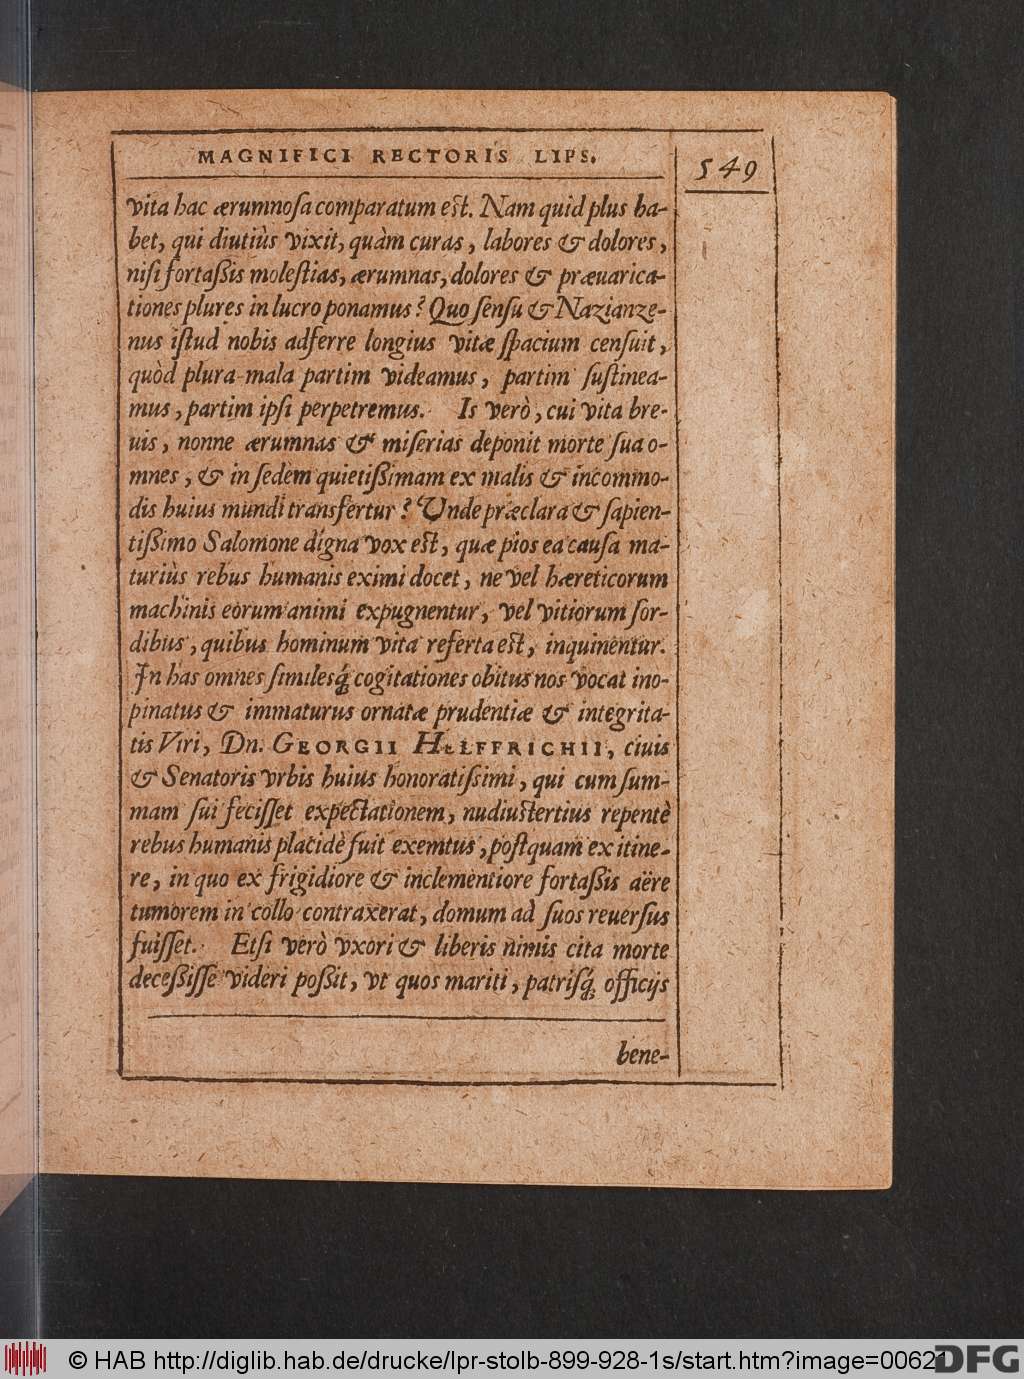 MAGNIFICI RECTORIS LIPS.
549
vita hac ærumnoſa comparatum eſt. Nam quid plus ha-
bet, qui diutiùs vixit, quàm curas, labores & dolores,
niſi fortaßis moleſtias, ærumnas, dolores & præuarica-
tiones plures in lucro ponamus? Quo ſenſu & Nazianze-
nus iſtud nobis adferre longius vitæ ſpacium cenſuit,
quòd plura mala partim videamus, partim ſuſtinea-
mus, partim ipſi perpetremus. Is verò, cui vita bre-
uis, nonne ærumnas & miſerias deponit morte ſua o-
mnes, & in ſedem quietißimam ex malis & incommo-
dis huius mundi transfertur? Unde præclara & ſapien-
tißimo Salomone digna vox eſt, quæ pios ea cauſa ma-
turiùs rebus humanis eximi docet, ne vel hæreticorum
machinis eorum animi expugnentur, vel vitiorum ſor-
dibus, quibus hominum vita referta eſt, inquinentur.
In has omnes ſimilesq́; cogitationes obitus nos vocat ino-
pinatus & immaturus ornatæ prudentiæ & integrita-
tis Viri, Dn. GEORGII HELFFRICHII, ciuis
& Senatoris vrbis huius honoratiſsimi, qui cum ſum-
mam ſui feciſſet expectationem, nudiuſtertius repentè
rebus humanis placidè fuit exemtus, poſtquam ex itine-
re, in quo ex frigidiore & inclementiore fortaßis aëre
tumorem in collo contraxerat, domum ad ſuos reuerſus
fuiſſet. Etſi verò vxori & liberis nimis cita morte
deceßiſſe videri poßit, vt quos mariti, patriſq́; officijs
bene-
© HAB http://diglib.hab.de/drucke/lpr-stolb-899-928-1s/start.htm?image=00621
DFG